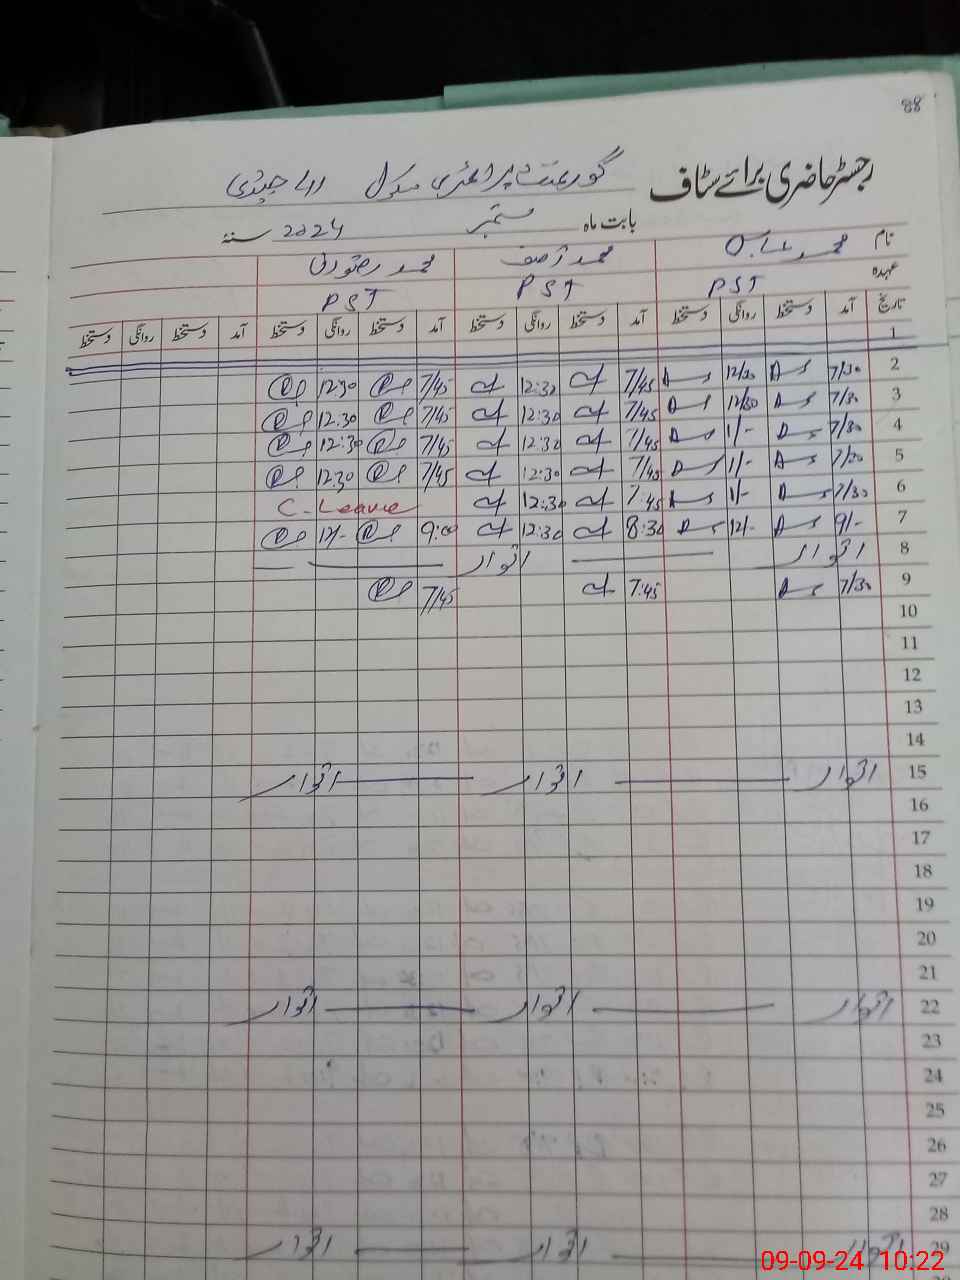 88
رجسٹر حاضری برائے سٹاف گورنمنٹ پرائمری سکول
بابت ماہ ستمبر 2024 سنہ
نام محمد محمد آصف محمد رضوان
عہدہ PST PST PST
تاریخ آمد دستخط روانگی دستخط آمد دستخط روانگی دستخط آمد دستخط روانگی دستخط آمد دستخط روانگی دستخط
1
2 7/30 12/30 7/45 12:30 7/45 12:30
3 7/30 12/30 7/45 12:30 7/45 12:30
4 7/30 1/- 7/45 12:30 7/45 12:30
5 7/30 1/- 7/45 12:30 7/45 12:30
6 7/30 1/- 7:45 12:30 C-Leave
7 9/- 12/- 8:30 12:30 9:00 12/-
8 اتوار اتوار
9 7/30 7:45 7/45
10
11
12
13
14
15 اتوار اتوار اتوار
16
17
18
19
20
21
22 اتوار اتوار اتوار
23
24
25
26
27
28
29 اتوار اتوار اتوار
09-09-24 10:22